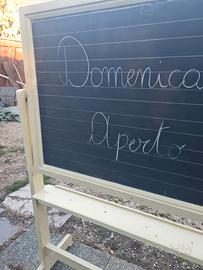 Domenica
Aperto